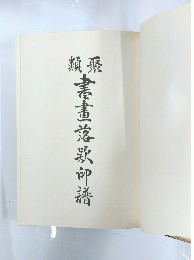 聚類
書畫落款印譜